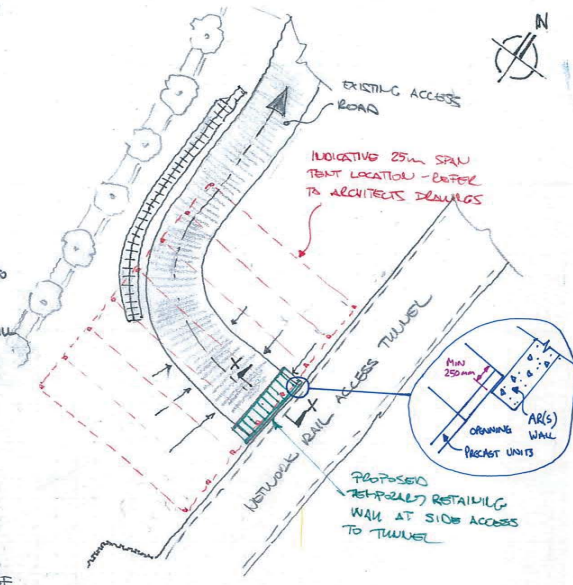 N
EXISTING ACCESS
ROAD
INDICATIVE 25m SPAN
TENT LOCATION - REFER
TO ARCHITECTS DRAWINGS
NETWORK RAIL ACCESS TUNNEL
X
X
MIN
250mm
OPENNING
AR(S)
WALL
PRECAST UNITS
PROPOSED
TEMPORARY RETAINING
WALL AT SIDE ACCESS
TO TUNNEL